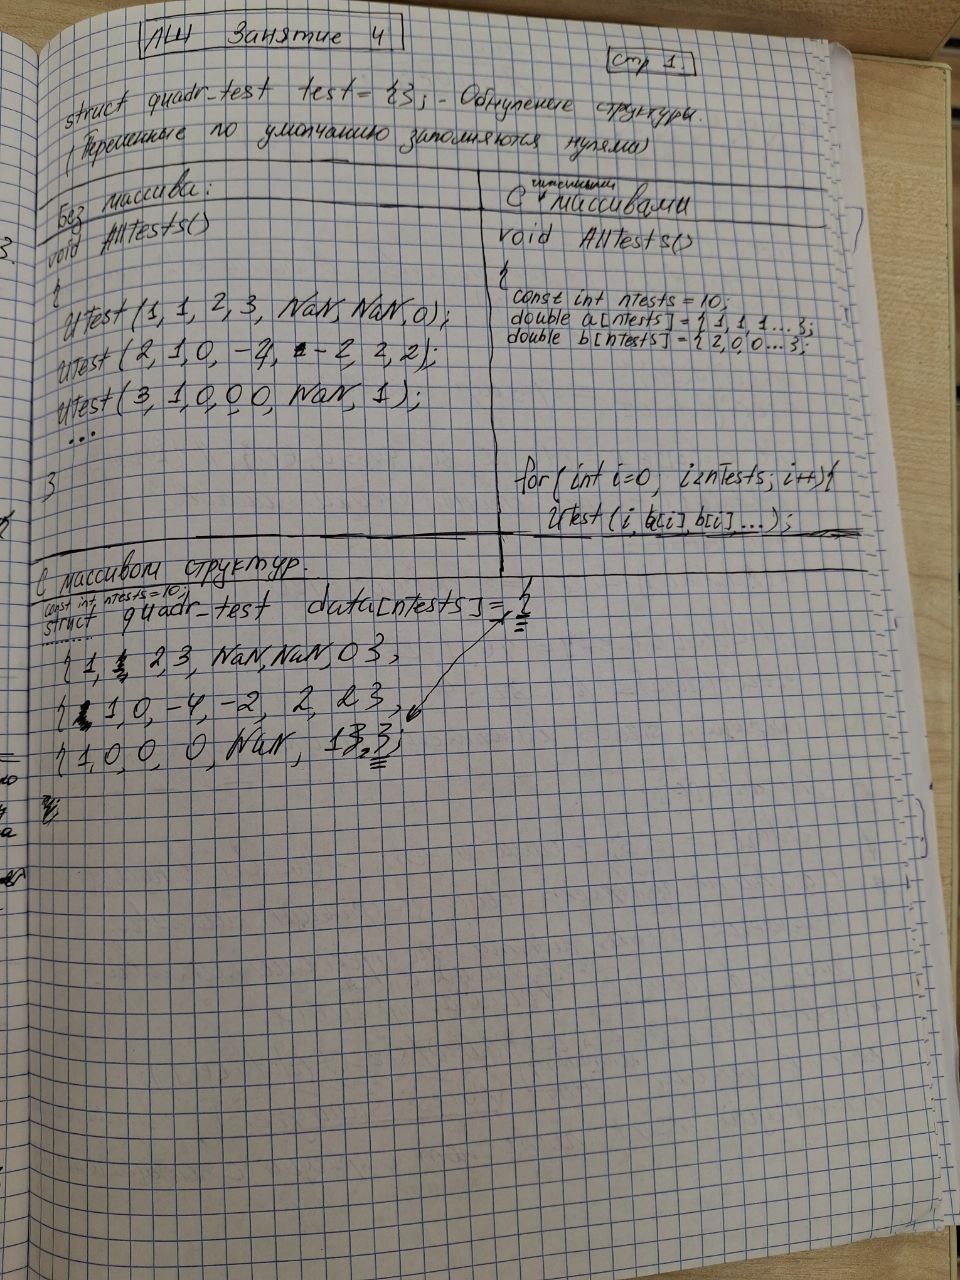 ЛШ Занятие 4
Стр 1.
struct quadr_test test = {}; - Обнуление структуры.
(Переменные по умолчанию заполняются нулями)
Без массива:
void AllTests()
{
UTest(1, 1, 2, 3, NaN, NaN, 0);
UTest(2, 1, 0, -4, -2, 2, 2);
UTest(3, 1, 0, 0, 0, NaN, 1);
...
}
С массивами
void AllTests()
{
const int nTests = 10;
double a[nTests] = { 1, 1, 1 ... };
double b[nTests] = { 2, 0, 0 ... };
for (int i=0; i<nTests; i++){
UTest(i, a[i], b[i], ...);
С массивом структур.
const int nTests = 10;
struct quadr_test data[nTests] = {
{1, 2, 3, NaN, NaN, 0},
{1, 0, -4, -2, 2, 2},
{1, 0, 0, 0, NaN, 1}, };